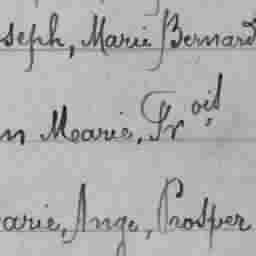 seph, Marie Bernard
n Mearie, Fr oil
arie, Ange, Prosper